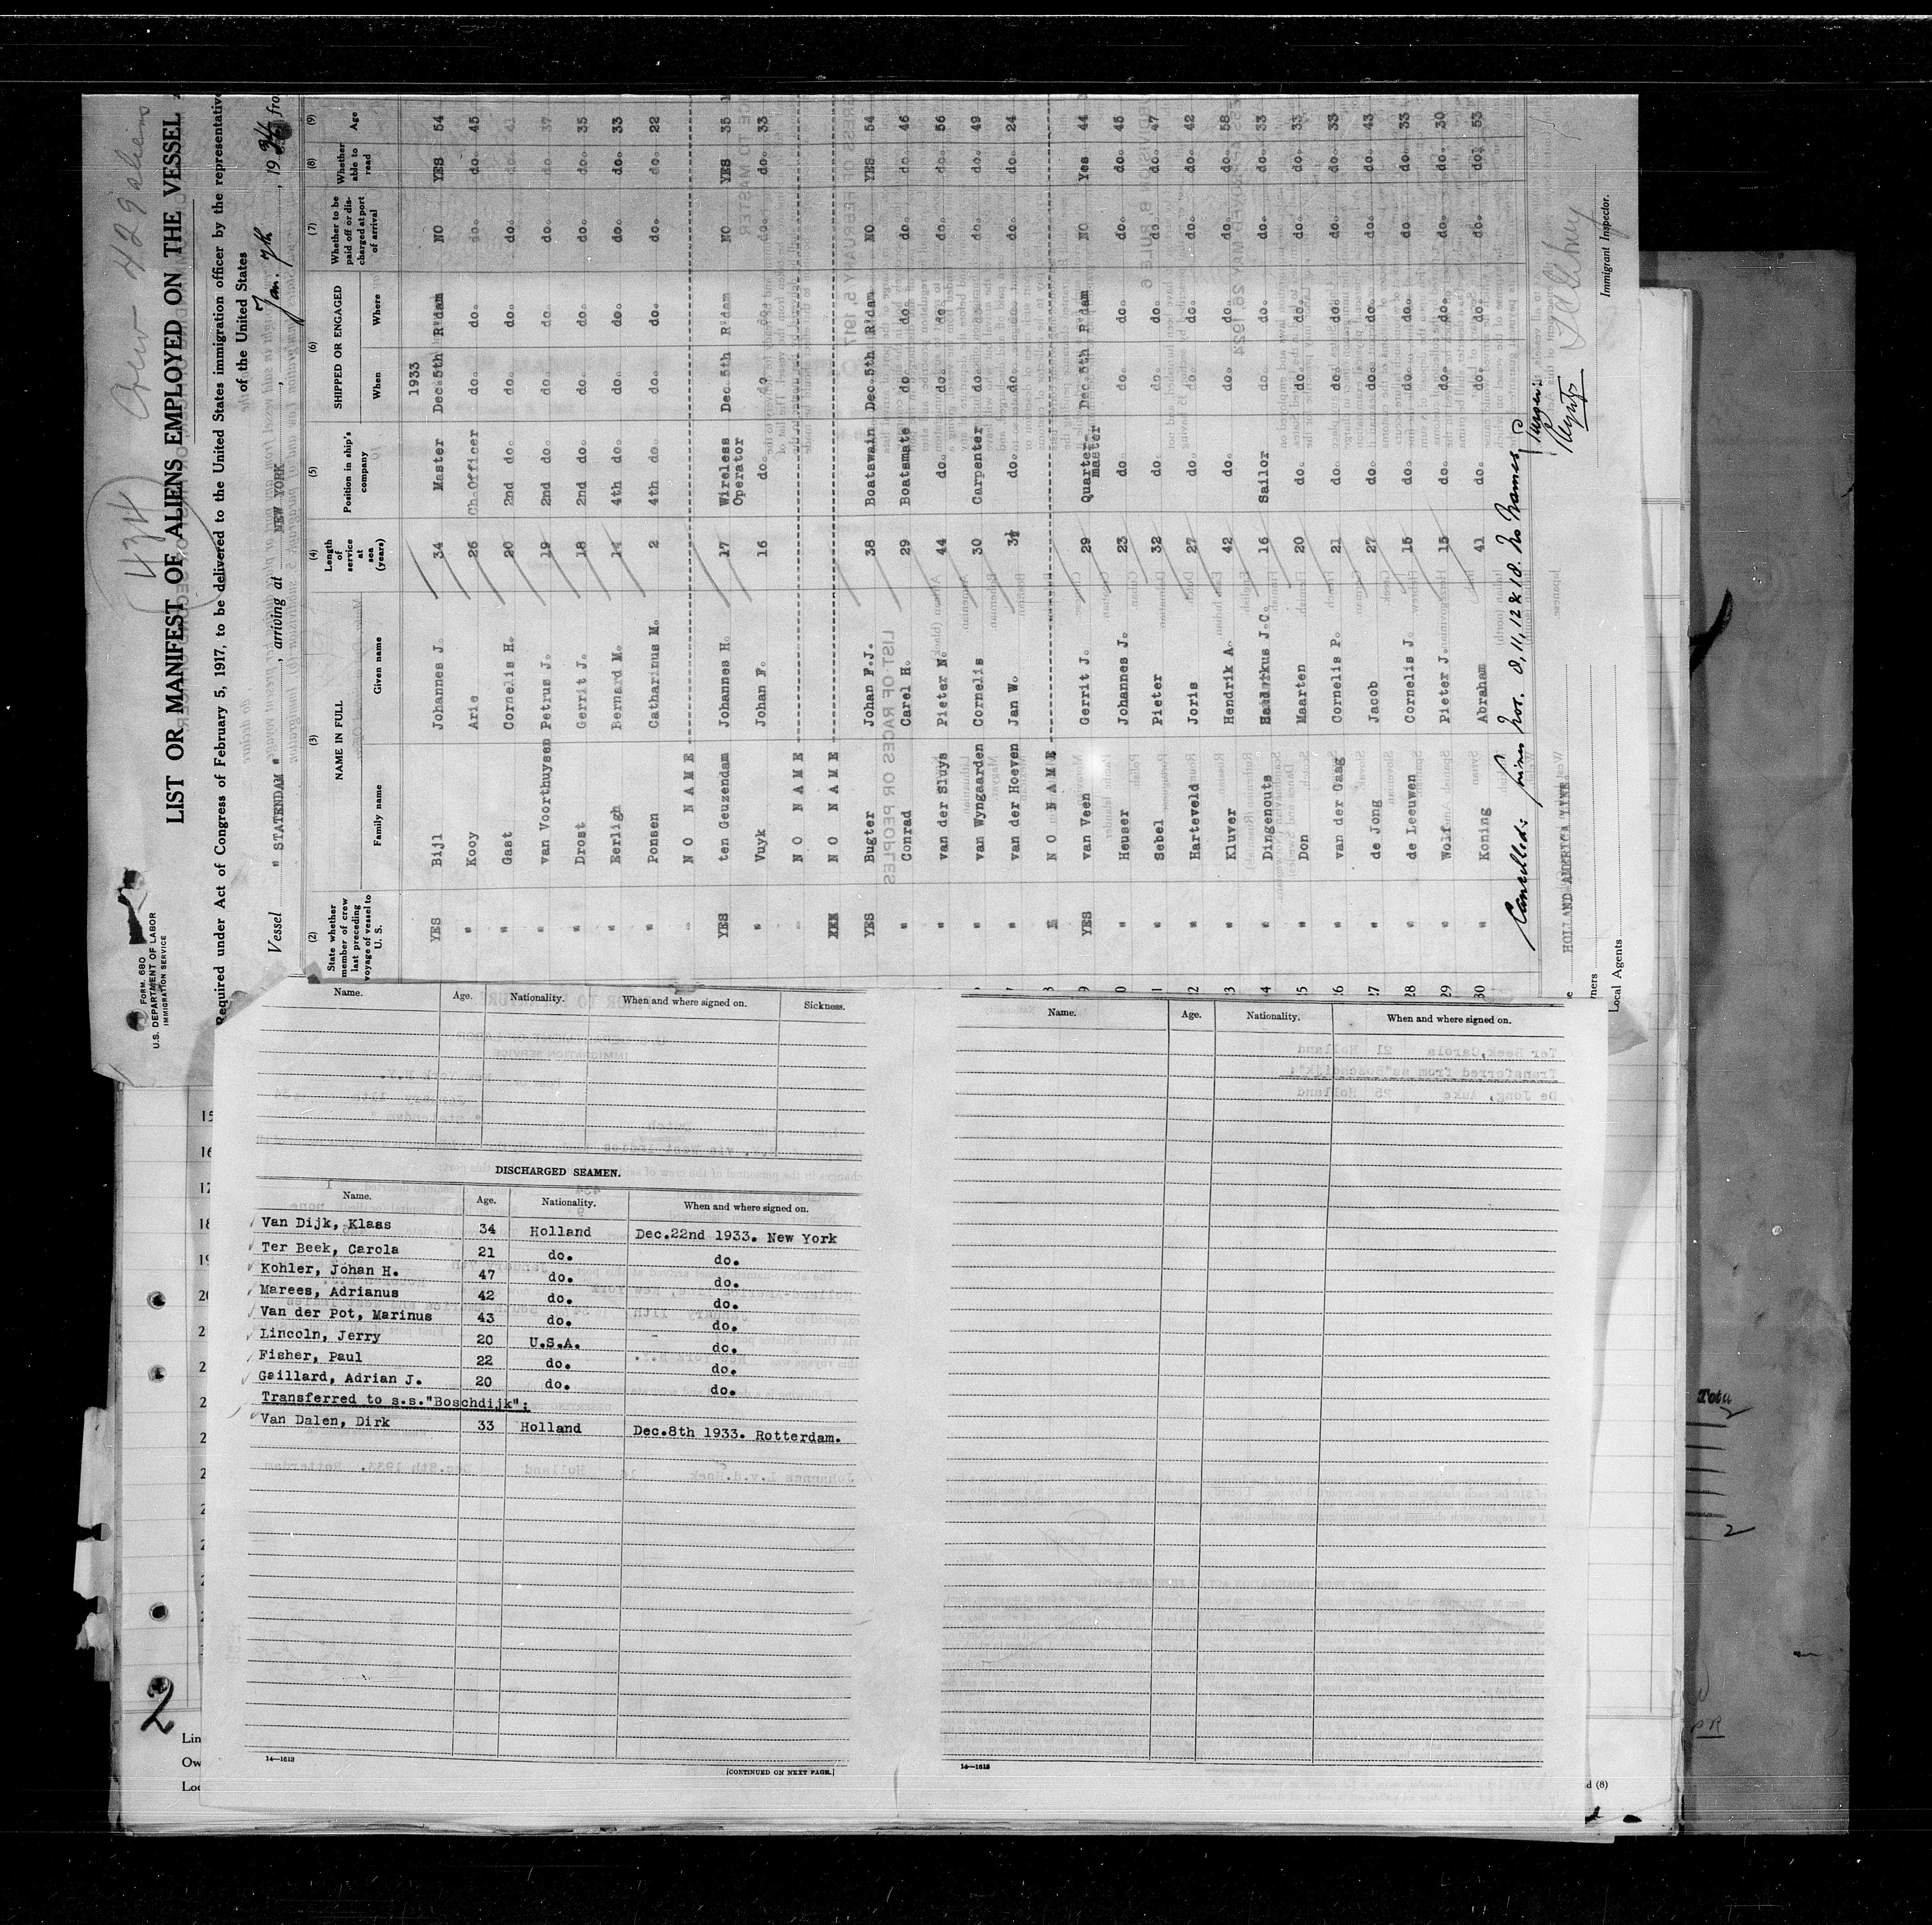 Crew - 429 aliens
434
FORM 680
U.S. DEPARTMENT OF LABOR
IMMIGRATION SERVICE
LIST OR MANIFEST OF ALIENS EMPLOYED ON THE VESSEL
Required under Act of Congress of February 5, 1917, to be delivered to the United States immigration officer by the representative
of the United States
Vessel " STATENDAM " , arriving at NEW YORK , Jan. 7th , 1934 fro
(2) (3) (4) (5) (6) (7) (8) (9)
State whether member of crew last preceding voyage of vessel to U. S. NAME IN FULL Family name Given name Length of service at sea (years) Position in ship's company SHIPPED OR ENGAGED When Where Whether to be paid off or discharged at port of arrival Whether able to read Age
1933
YES Bijl Johannes J. 34 Master Dec.5th R'dam NO YES 54
" Kooy Arie 26 Ch.Officer do. do. do. do. 45
" Gast Cornelis H. 20 2nd do. do. do. do. do. 41
" van Voorthuysen Petrus J. 19 2nd do. do. do. do. do. 37
" Drost Gerrit J. 18 2nd do. do. do. do. do. 35
" Eerligh Bernard M. 14 4th do. do. do. do. do. 33
" Ponsen Catharinus M. 2 4th do. do. do. do. do. 22
- N O N A M E
YES ten Geuzendam Johannes H. 17 Wireless Operator Dec.5th R'dam NO YES 35
" Vuyk Johan F. 16 do. do. do. do. do. 33
- N O N A M E
XXX N O N A M E
YES Bugter Johan F.J. 38 Boatswain Dec.5th R'dam NO YES 54
" Conrad Carel H. 29 Boatsmate do. do. do. do. 46
" van der Sluys Pieter N. 44 do. do. do. do. do. 56
" van Wyngaarden Cornelis 30 Carpenter do. do. do. do. 49
" van der Hoeven Jan W. 3½ do. do. do. do. do. 24
N O N A M E
YES van Veen Gerrit J. 29 Quarter-master Dec.5th R'dam NO Yes 44
" Heuser Johannes J. 23 do. do. do. do. do. 45
" Sebel Pieter 32 do. do. do. do. do. 47
" Harteveld Joris 27 do. do. do. do. do. 42
" Kluver Hendrik A. 42 do. do. do. do. do. 58
" Dingenouts J.C. 16 Sailor do. do. do. do. 33
" Don Maarten 20 do. do. do. do. do. 33
" van der Gaag Cornelis P. 21 do. do. do. do. do. 33
" de Jong Jacob 27 do. do. do. do. do. 43
" de Leeuwen Cornelis J. 15 do. do. do. do. do. 33
" Wolf Pieter J. 15 do. do. do. do. do. 30
" Koning Abraham 41 do. do. do. do. do. 53
Cancelled: Nos. 8, 11, 12 & 18. No Names
HOLLAND AMERICA LINE.
Local Agents
Immigrant Inspector.
Name. Age. Nationality. When and where signed on. Sickness.
DISCHARGED SEAMEN.
Name. Age. Nationality. When and where signed on.
Van Dijk, Klaas 34 Holland Dec.22nd 1933. New York
Ter Beek, Carola 21 do. do.
Kohler, Johan H. 47 do. do.
Marees, Adrianus 42 do. do.
Van der Pot, Marinus 43 do. do.
Lincoln, Jerry 20 U.S.A. do.
Fisher, Paul 22 do. do.
Gaillard, Adrian J. 20 do. do.
Transferred to s.s."Boschdijk":
Van Dalen, Dirk 33 Holland Dec.8th 1933. Rotterdam.
14—1613
[CONTINUED ON NEXT PAGE.]
Name. Age. Nationality. When and where signed on.
14—1613
15
16
17
18
19
2
Lin
Ow
Loc
d (8)